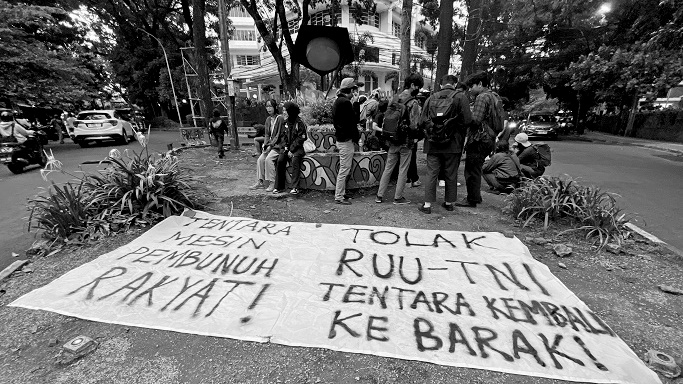 TENTARA
MESIN
PEMBUNUH
RAKYAT!
TOLAK
RUU-TNI
TENTARA KEMBALI
KE BARAK!